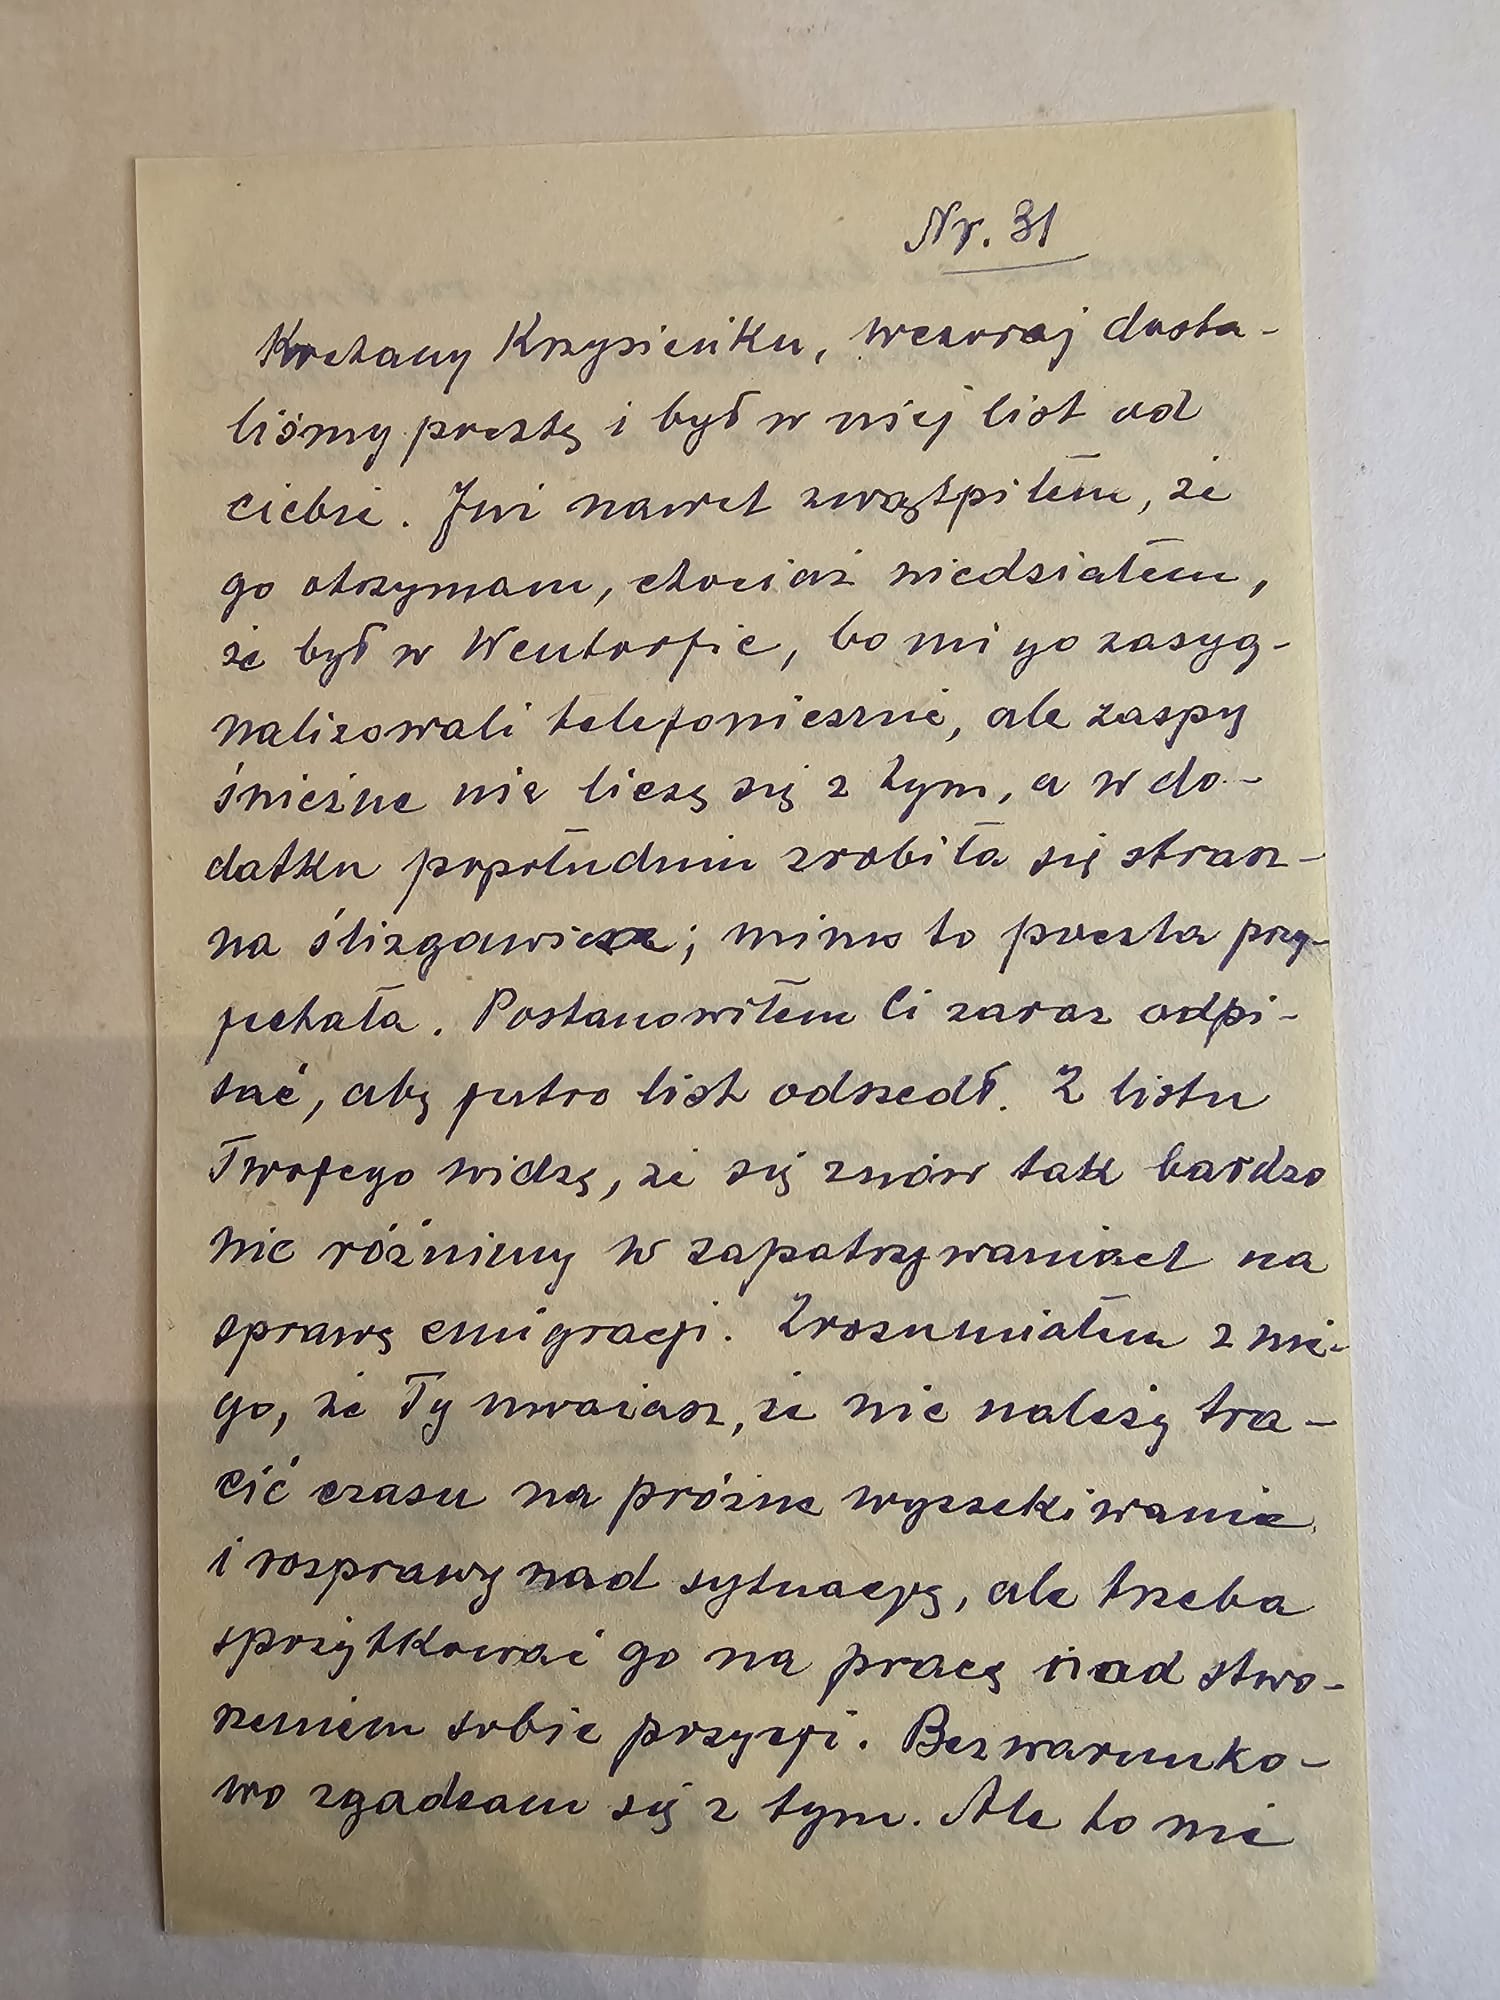 Nr. 31
Kochany Krzysieńku, wczoraj dosta-
liśmy pocztę i był w niej list od
ciebie. Już nawet zwątpiłem, że
go otrzymam, chociaż wiedziałem,
że był w Wentorfie, bo mi go zasyg-
nalizowali telefonicznie, ale zaspy
śnieżne nie liczą się z tym, a w do-
datku popołudniu zrobiła się strasz-
na ślizgawica; mimo to poczta przy-
jechała. Postanowiłem Ci zaraz odpi-
sać, aby jutro list odszedł. Z listu
Twojego widzę, że się znów tak bardzo
nie różnimy w zapatrywaniach na
sprawę emigracji. Zrozumiałem z nie-
go, że Ty uważasz, że nie należy tra-
cić czasu na próżne wyczekiwanie
i rozprawy nad sytuacją, ale trzeba
spożytkować go na pracę nad stwo-
rzeniem sobie pozycji. Bezwarunko-
wo zgadzam się z tym. Ale to nie